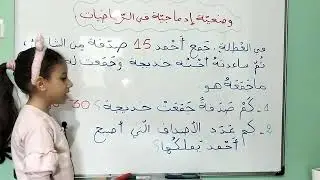 وضعيّة إدماجيّة في الرّياضيات
في العطلة: جمع أحمد 15 صدفة من الشاطئ
ثمّ ساعدته أخته خديجة وجمعت
ما جمعه هو
1- كم صدفةً جمعت خديجة؟ 30
2- كم عدد الأصداف الّتي أصبح
أحمد يملكها؟